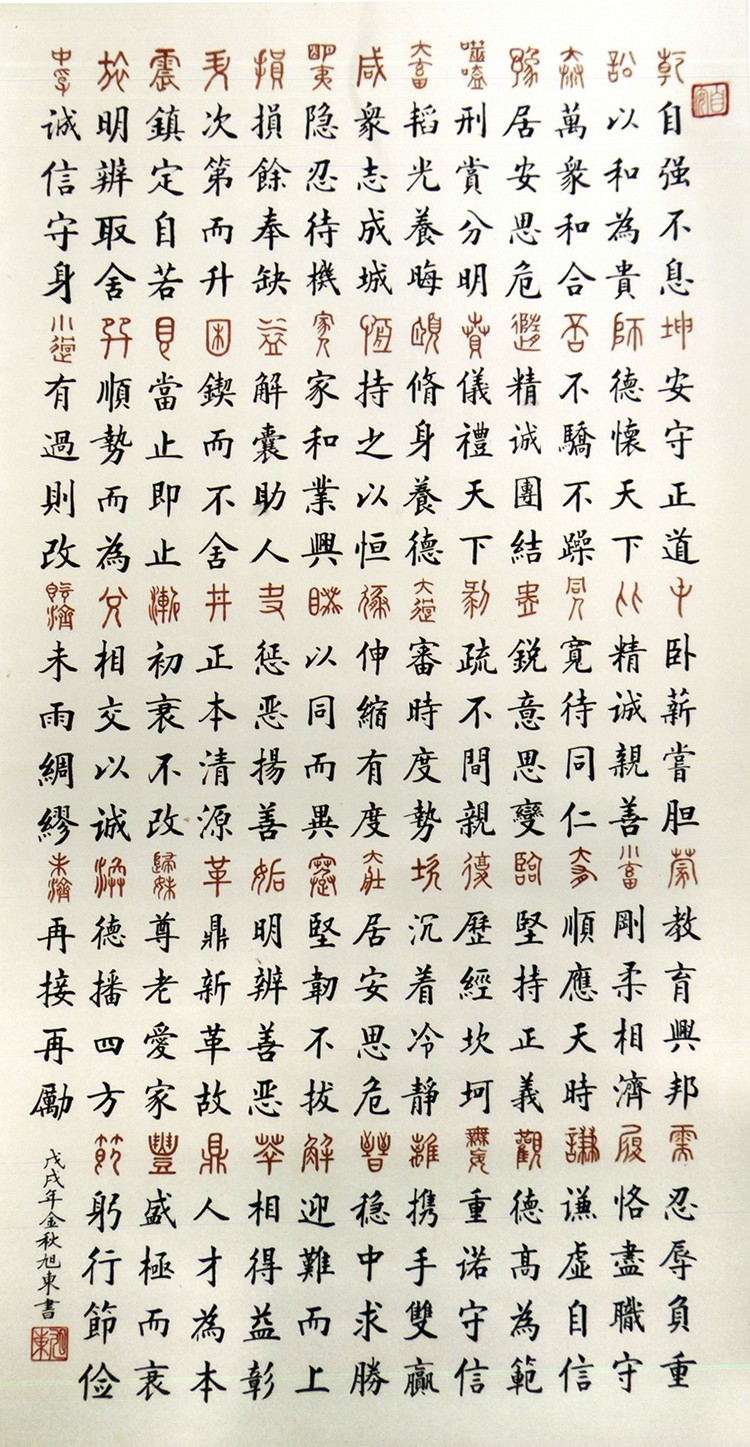 乾自强不息坤安守正道屯卧薪嘗胆蒙教育興邦需忍辱負重
訟以和為貴師德懷天下比精誠親善小畜剛柔相濟履恪盡職守
泰萬衆和合否不驕不躁同人寬待同仁大有順應天時謙谦虚自信
豫居安思危隨精誠團結蠱鋭意思變臨堅持正義觀德高為範
噬嗑刑賞分明賁儀禮天下剥疏不間親復歷經坎坷無妄重诺守信
大畜韬光養晦頤脩身養德大過審時度勢坎沉着冷静離携手雙赢
咸衆志成城恒持之以恒遯伸縮有度大壯居安思危晉穩中求勝
明夷隐忍待機家人家和業興睽以同而異蹇堅韌不拔解迎難而上
損損餘奉缺益解囊助人夬惩恶揚善姤明辨善恶萃相得益彰
升次第而升困鍥而不舍井正本清源革鼎新革故鼎人才為本
震鎮定自若艮當止即止漸初衷不改歸妹尊老愛家豐盛極而衰
旅明辨取舍巽順勢而為兑相交以诚渙德播四方節躬行節俭
中孚诚信守身小過有過則改既濟未雨綢繆未濟再接再勵
戊戌年金秋旭東書
旭東